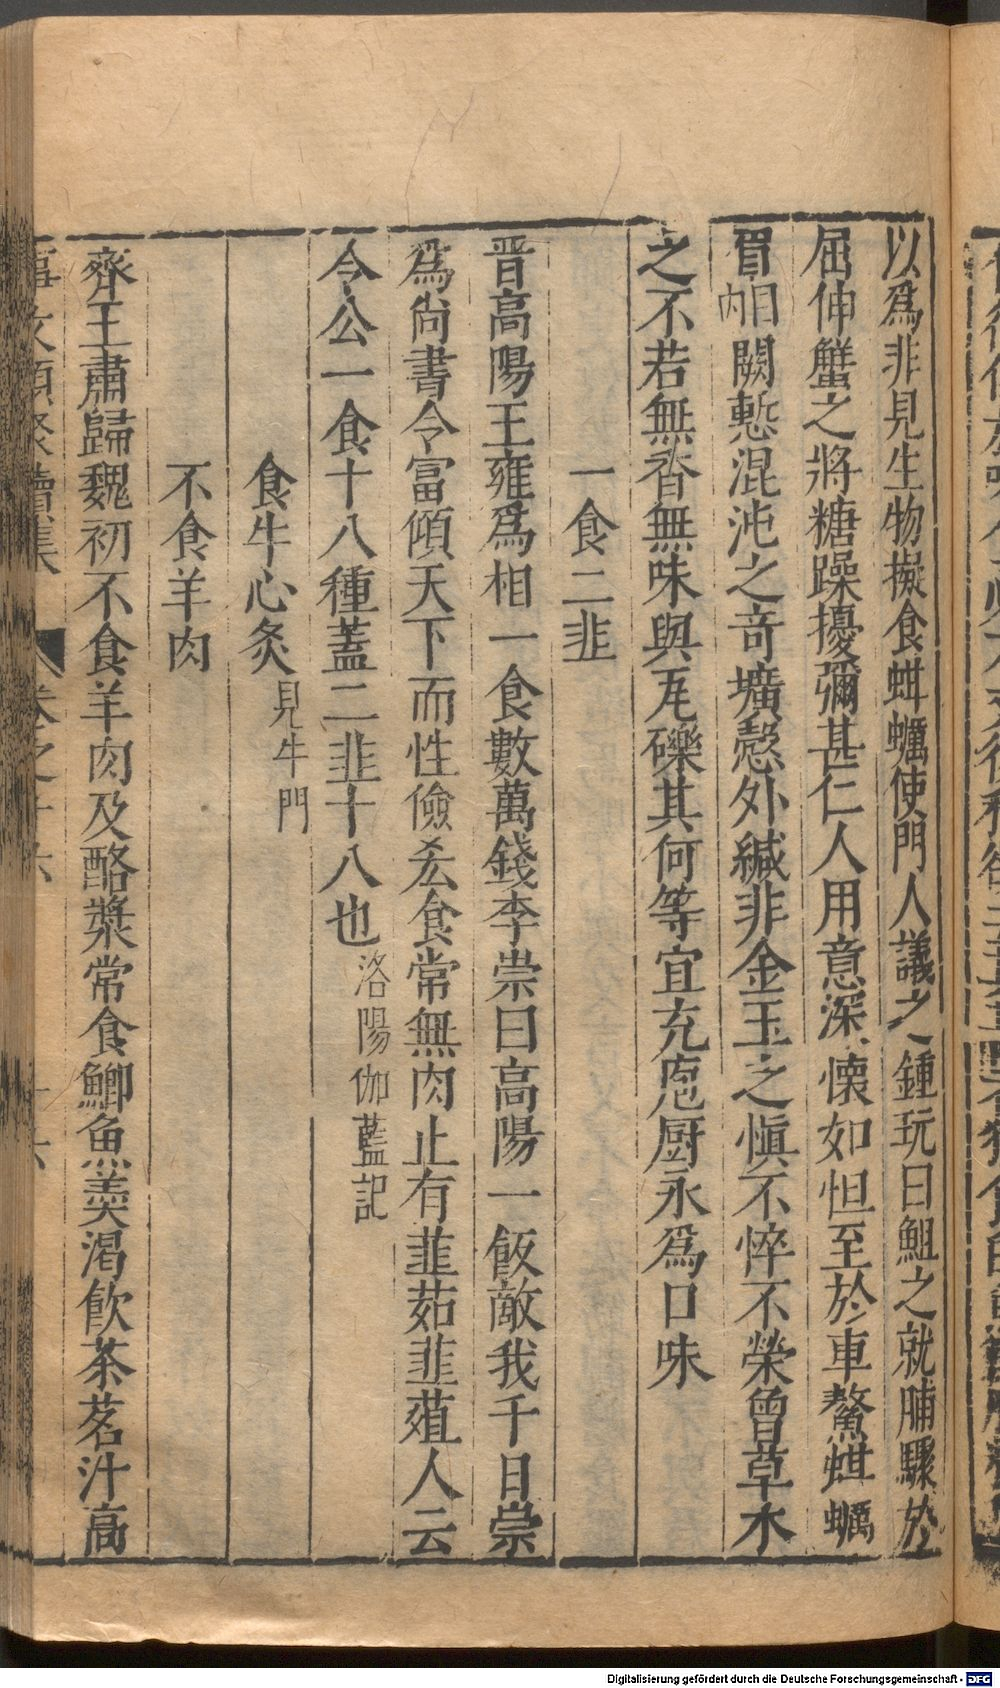 以爲非見生物擬食蚶蠣使門人議之鍾玩曰䱉之就脯驟於
屈伸蟹之將糖躁擾彌甚仁人用意深懷如怛至於車螯蚶蠣
眉目內闕慙混沌之奇壙愨外緘非金玉之愼不悴不榮曾草木
之不若無香無味與瓦礫其何等宜充庖厨永爲口味
一食二韭
晋高陽王雍爲相一食數萬錢李崇曰高陽一飯敵我千日崇
爲尙書令富傾天下而性儉𠫤食常無肉止有韮茹韮葅人云
令公一食十八種蓋二韭十八也洛陽伽藍記
食牛心炙見牛門
不食羊肉
齊王肅歸魏初不食羊肉及酪漿常食鯽魚羹渴飮茶茗汁高
事文類聚續集 卷之十六 十六
Digitalisierung gefördert durch die Deutsche Forschungsgemeinschaft - DFG